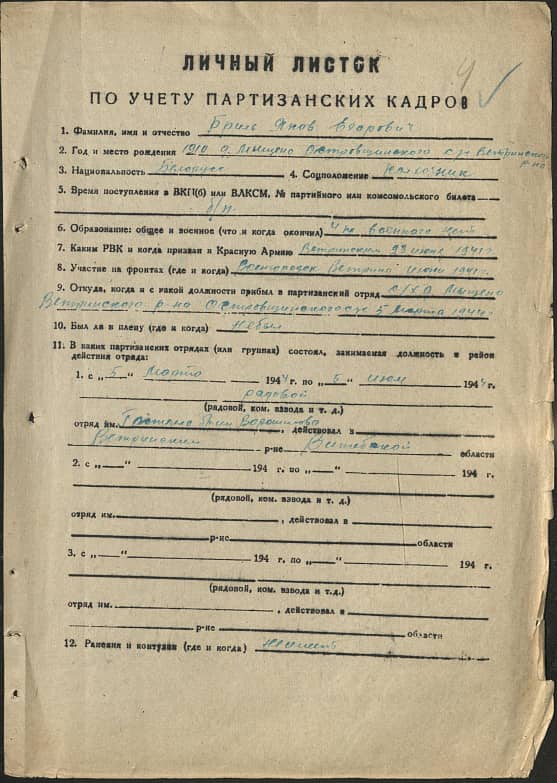 4
ЛИЧНЫЙ ЛИСТОК
ПО УЧЕТУ ПАРТИЗАНСКИХ КАДРОВ
1. Фамилия, имя и отчество Бриль Яков
2. Год и место рождения 1910 д. Мицено с/с Ветринского
р-на
3. Национальность Белорус 4. Соцположение колхозник
5. Время поступления в ВКП(б) или ВЛКСМ, № партийного или комсомольского билета
б/п.
6. Образование: общее и военное (что и когда окончил) 4 кл. военного нет
7. Каким РВК и когда призван в Красную Армию Ветринским 23 июня 1941г.
8. Участие на фронтах (где и когда) Ветрино июнь 1941г.
9. Откуда, когда и с какой должности прибыл в партизанский отряд с/х д. Мицено
Ветринского р-на 5 Марта 1944г
10. Был ли в плену (где и когда) Небыл
11. В каких партизанских отрядах (или группах) состоял, занимаемая должность и район
действия отряда:
1. с „5“ Марта 1944 г. по „5“ июля 1944 г.
рядовой
(рядовой, ком. взвода и т. д.)
отряд им. Ворошилова, действовал в
Ветринском р-не Витебской области
2. с „ “ 194 г. по „ “ 194 г.
(рядовой, ком. взвода и т. д.)
отряд им. , действовал в
р-не области
3. с „ “ 194 г. по „ “ 194 г.
(рядовой, ком. взвода и т.д.)
отряд им. , действовал в
р-не области
12. Ранения и контузии (где и когда) неимеет